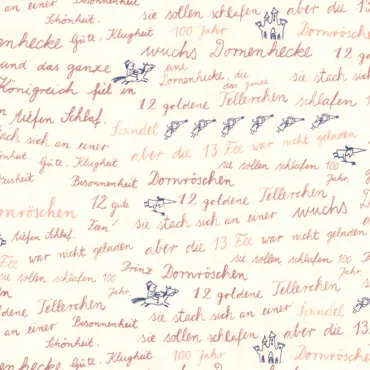 an einer Besonnenheit sie sollen schlafen aber die 13
Schönheit. 100 Jahr Dornröschen
Dornenhecke Güte. Klugheit wuchs Dornenhecke
und das ganze eine Dornenhecke, die 12 gol
Königreich fiel in das ganze sie stach sich
tiefen Schlaf. 12 goldene Tellerchen schlafen
stach sich an einer Spindel
Schönheit. Güte. Klugheit aber die 13 Fee war nicht geladen
sie sollen schlafen 100 Jahr
Besonnenheit Dornröschen
Dornröschen 12 gute 12 goldene Tellerchen
tiefen Schlaf. sie stach sich an einer wuchs Dorn
Fee war nicht geladen aber die 13 Fee war nicht geladen
sie sollen schlafen 100 Jahr Prinz Dornröschen sie sollen schlafen 100 Jahr
goldene Tellerchen 12 goldene Tellerchen
an einer Besonnenheit sie stach sich an einer Spindel
Schönheit. sie sollen schlafen aber die 13
Dornenhecke Güte. Klugheit 100 Jahr Dornröschen